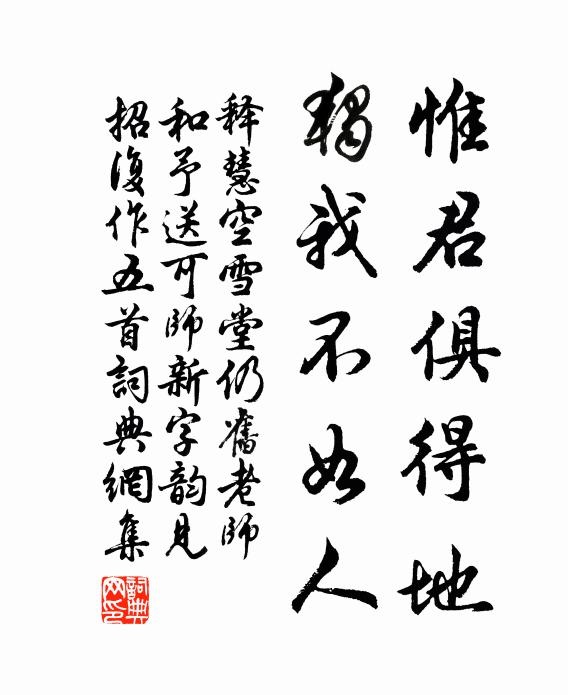 惟君俱得地
獨我不如人
释慧空雪堂仍舊老師
和予送可師新字韵見
招復作五首詞典網集